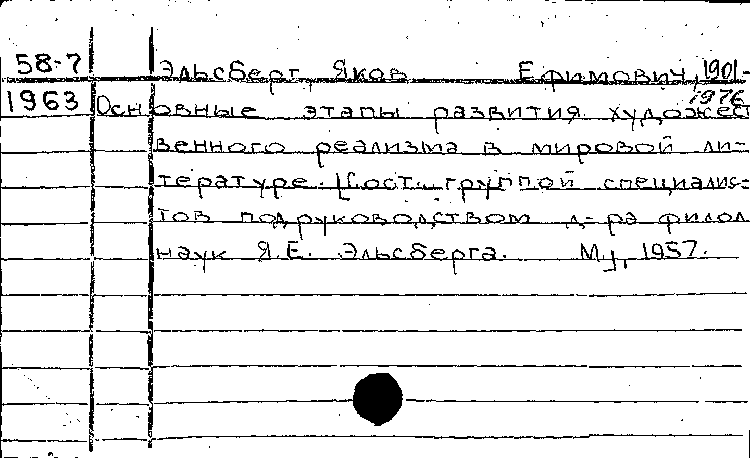 58-7 Эльсберг, Яков Ефимович, 1901-
1976
1963 Основные этапы развития художест
венного реализма в мировой ли-
тературе. [Сост. группой специалис-
тов под руководством д-ра филол
наук Я.Е. Эльсберга. М., 1957.